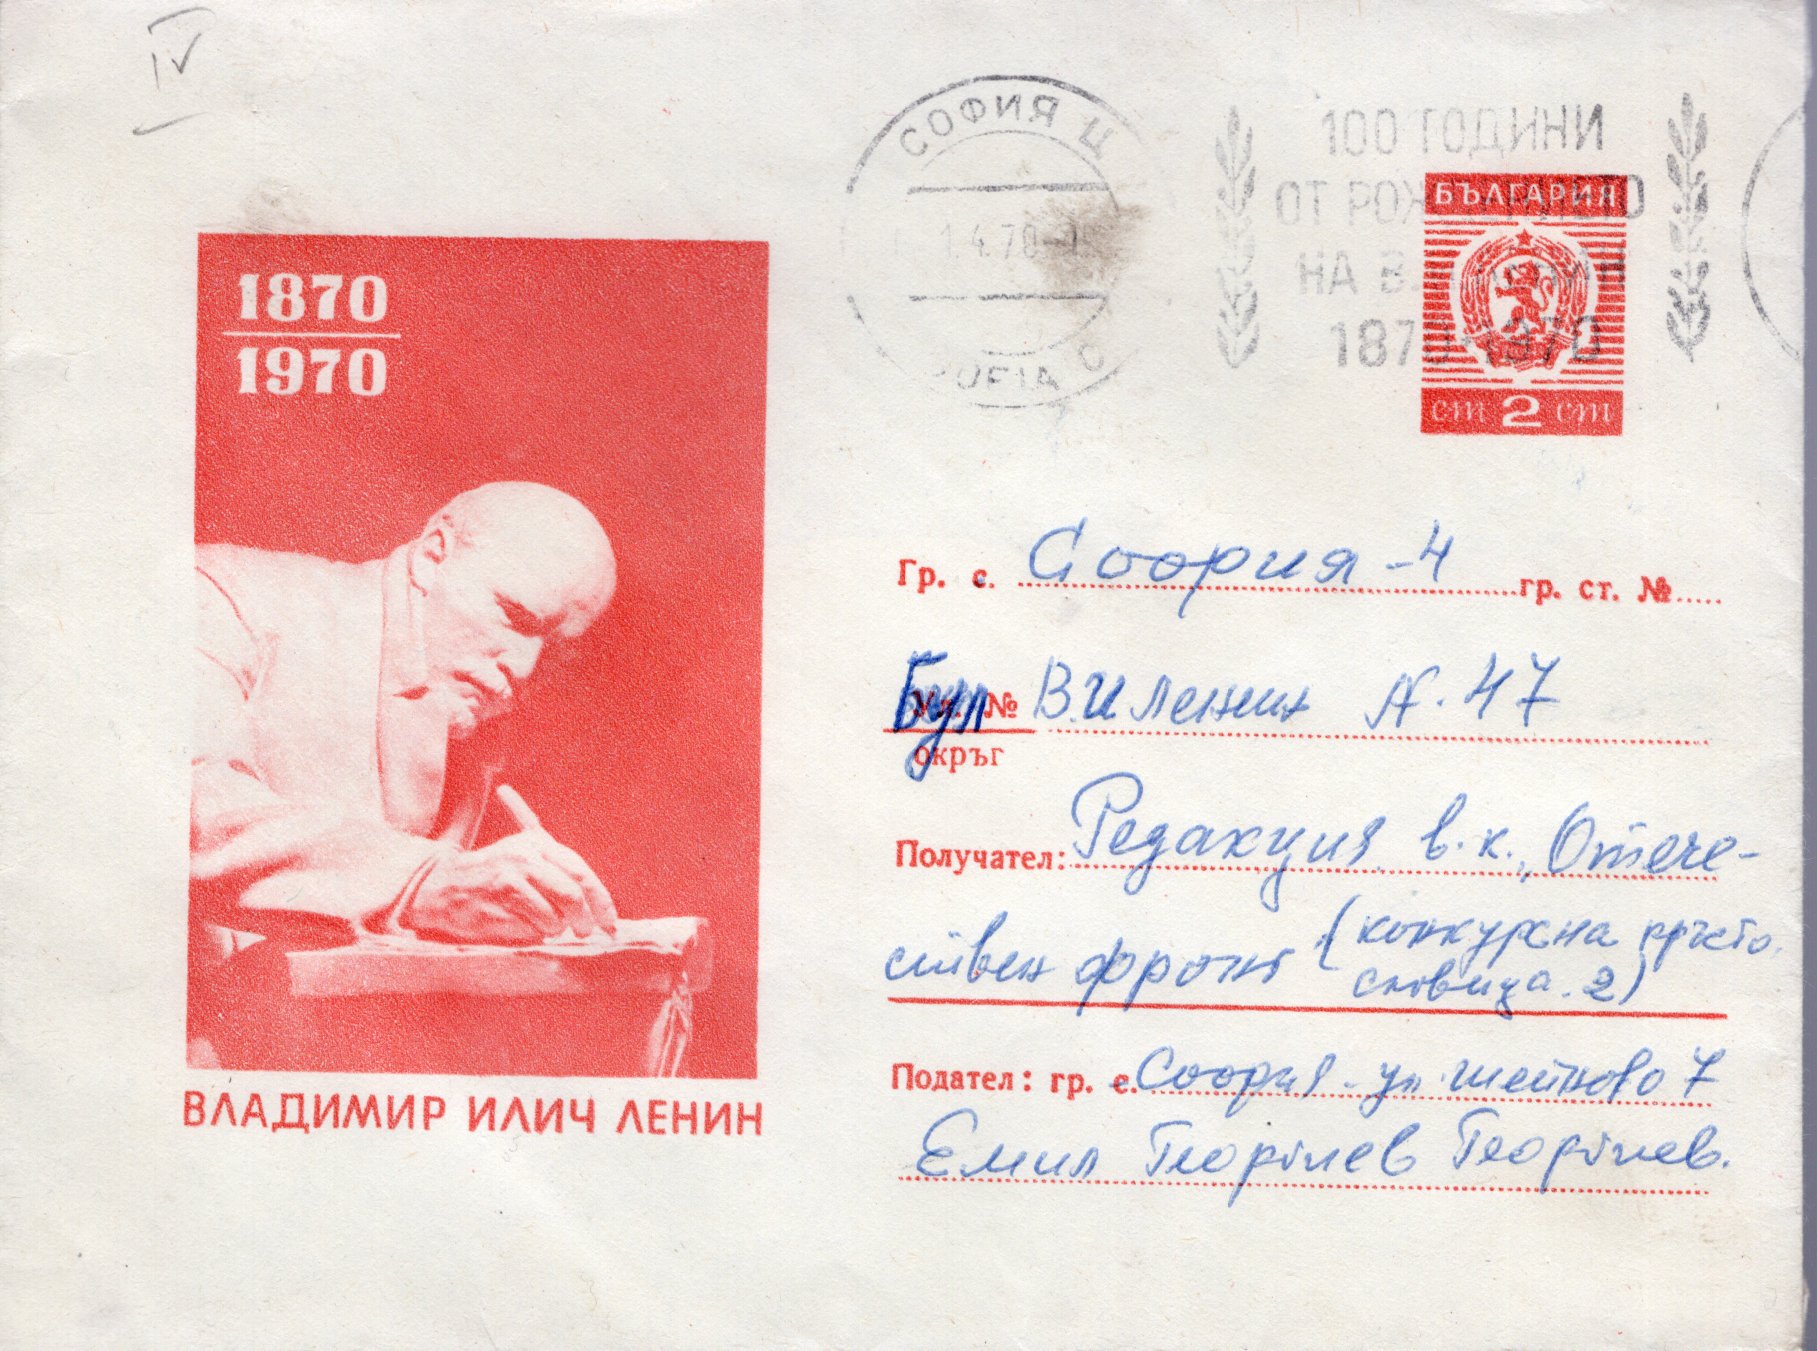 IV
СОФИЯ Ц
1.4.70
SOFIA C
100 ГОДИНИ
ОТ РОЖДЕНИЕТО
НА В.И.ЛЕНИН
1870-1970
БЪЛГАРИЯ
ст 2 ст
1870
1970
ВЛАДИМИР ИЛИЧ ЛЕНИН
Гр. с. София-4 гр. ст. №
Бул № В.И Ленин N. 47
окръг
Получател: Редакция в.к. „Отече-
ствен фронт (конкурсна кръсто-
словица. 2)
Подател: гр. с. София ул. Шейново 7
Емил Георгиев Георгиев.